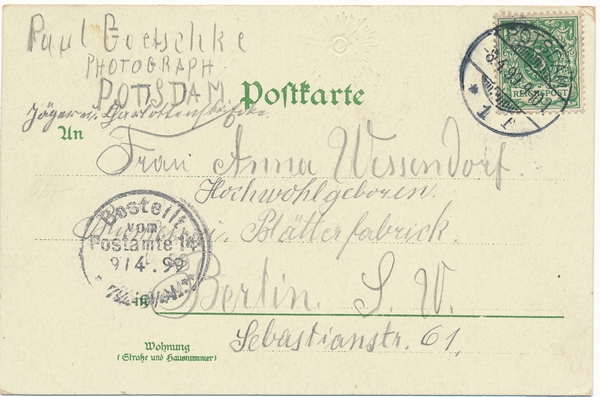 Paul Goetschke
PHOTOGRAPH
POTSDAM
Postkarte
Jäger u. Charlottenstr. Ecke.
An
Frau Anna Wessendorf.
Hochwohlgeboren
Blätterfabrick.
in Berlin. S. W.
Sebastianstr. 61,
Wohnung
(Straße und Hausnummer)
POTSDAM
8.4.99
1
REICHSPOST
Bestellt
vom
Postamte 14
9/4.99